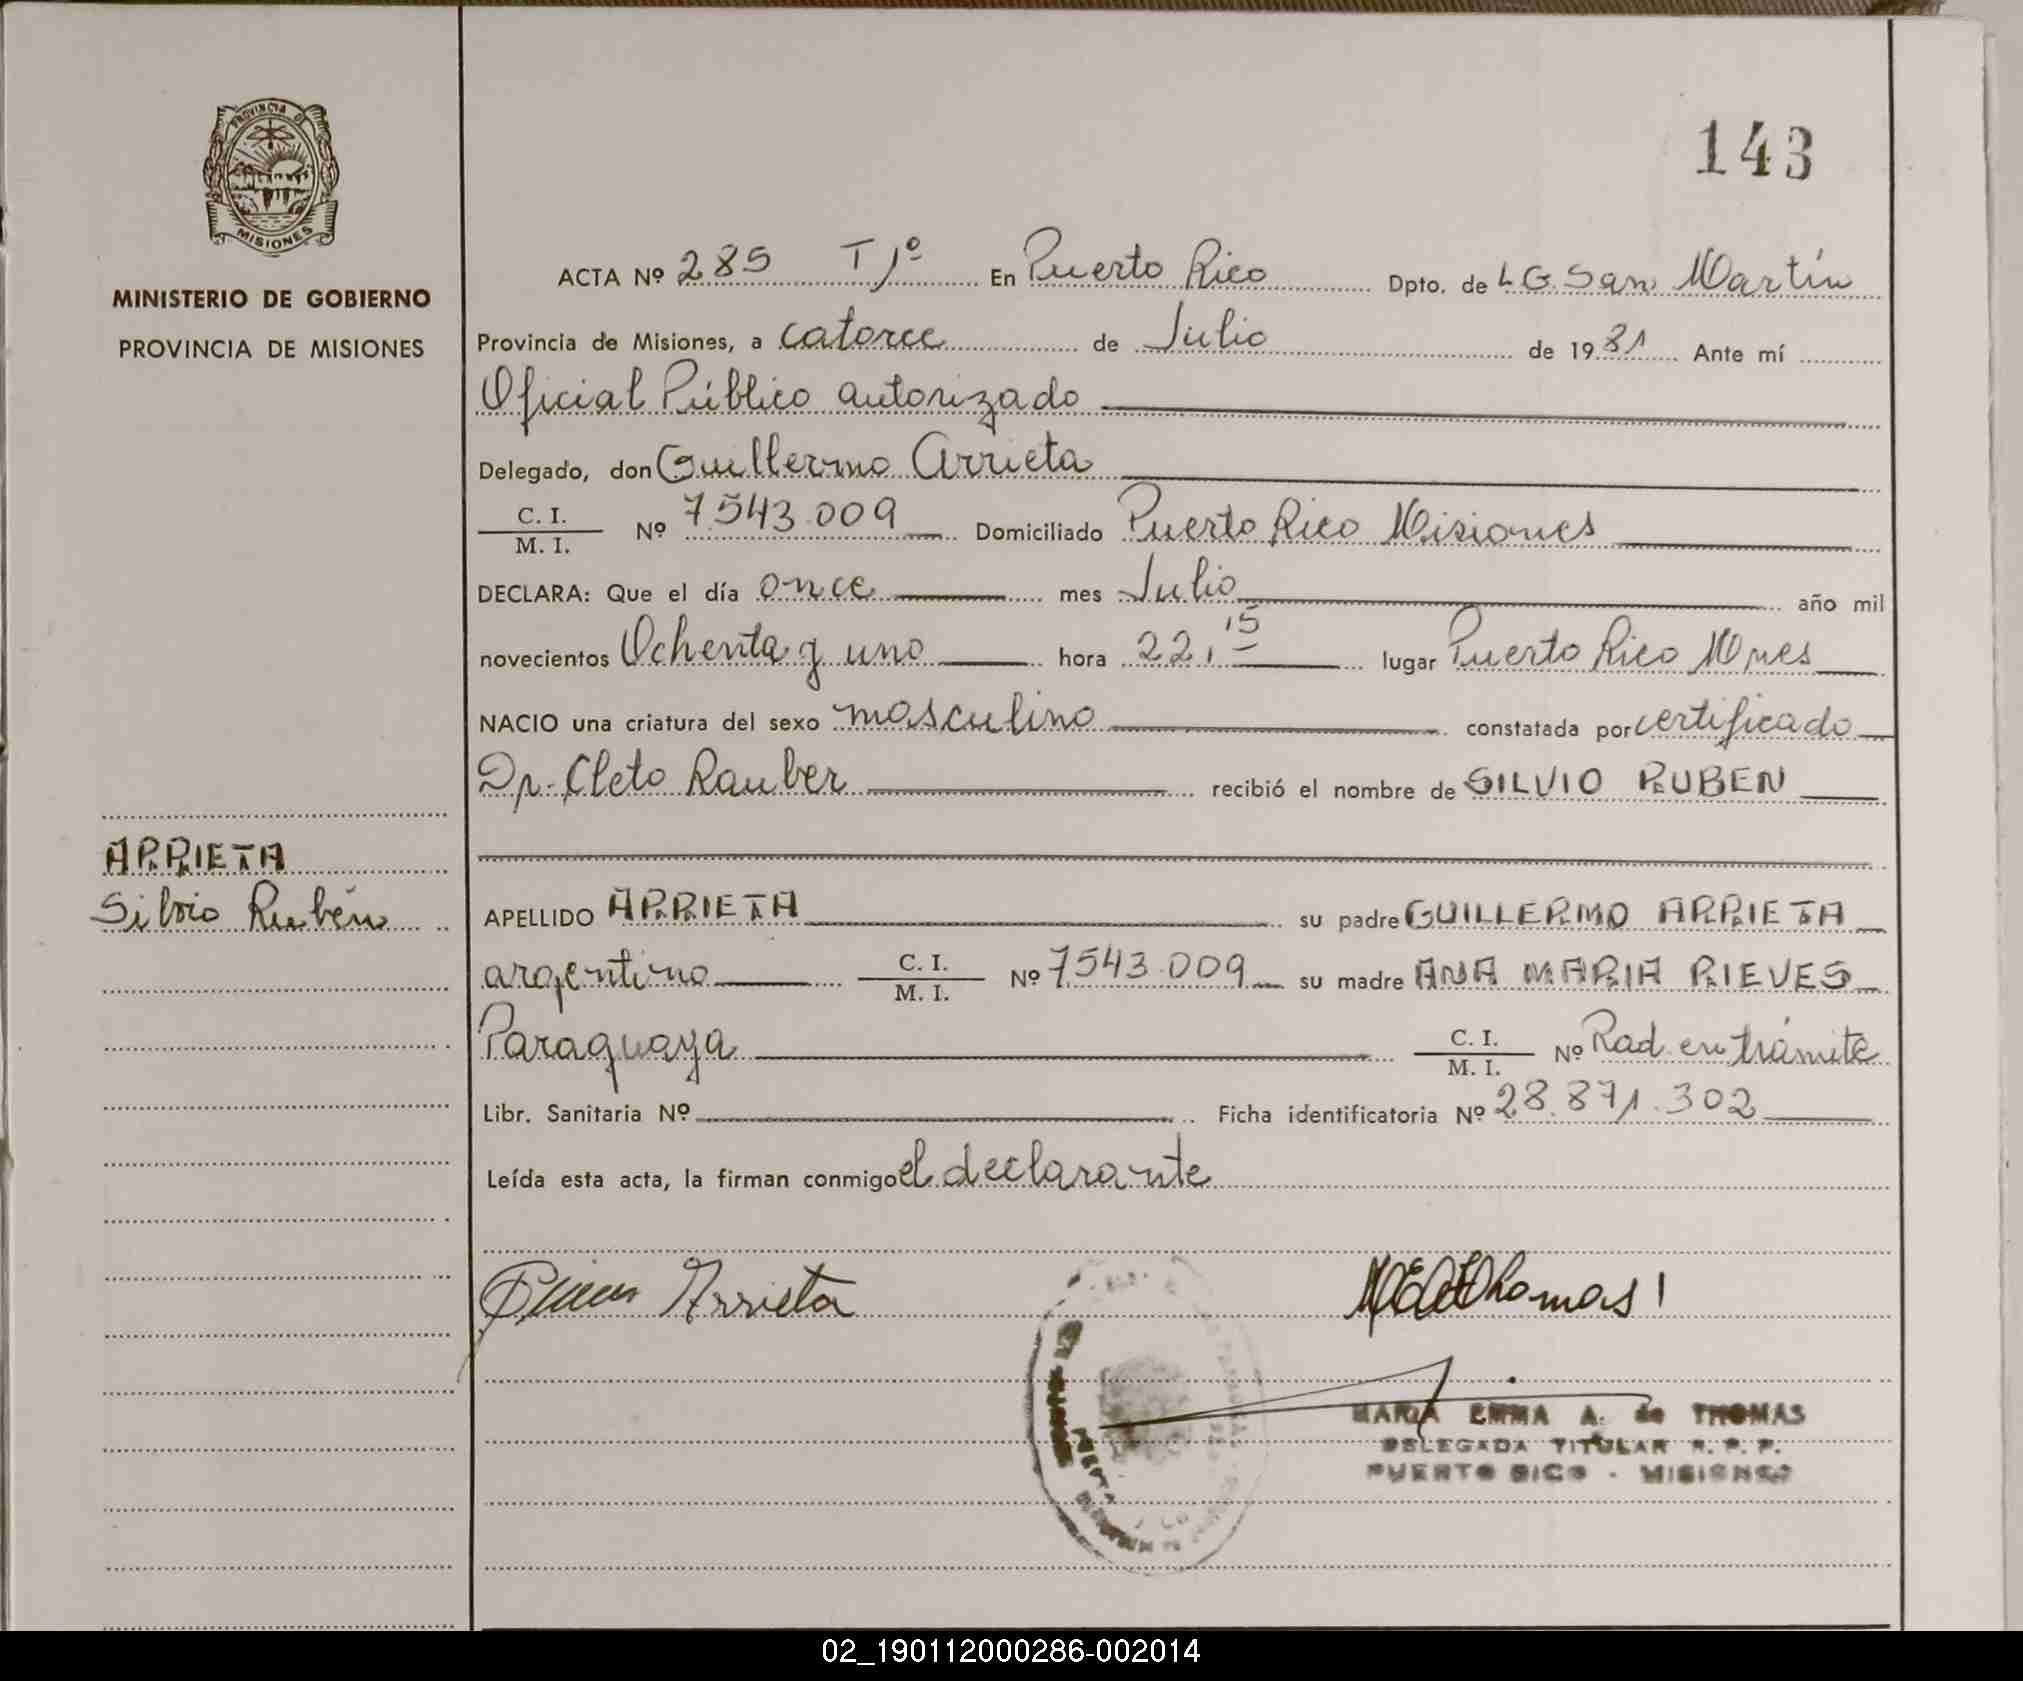 PROVINCIA DE
MISIONES
MINISTERIO DE GOBIERNO
PROVINCIA DE MISIONES
143
ACTA Nº 285 Tº 1º En Puerto Rico Dpto. de L G. San Martín
Provincia de Misiones, a catorce de Julio de 1981 Ante mí
Oficial Público autorizado
Delegado, don Guillermo Arrieta
C. I.
M. I. Nº 7.543.009 Domiciliado Puerto Rico Misiones
DECLARA: Que el día once mes Julio año mil
novecientos Ochenta y uno hora 22,15 lugar Puerto Rico Mnes
NACIO una criatura del sexo masculino constatada por certificado
Dr. Cleto Rauber recibió el nombre de SILVIO RUBEN
ARRIETA
Silvio Rubén
APELLIDO ARRIETA su padre GUILLERMO ARRIETA
argentino C. I.
M. I. Nº 7.543.009 su madre ANA MARIA RIEVES
Paraguaya C. I.
M. I. Nº Rad. en trámite
Libr. Sanitaria Nº Ficha identificatoria Nº 28.871.302
Leída esta acta, la firman conmigo el declarante
Arrieta
Thomas
MARIA EMMA A. de THOMAS
DELEGADA TITULAR R. P. P.
PUERTO RICO - MISIONES
02_190112000286-002014